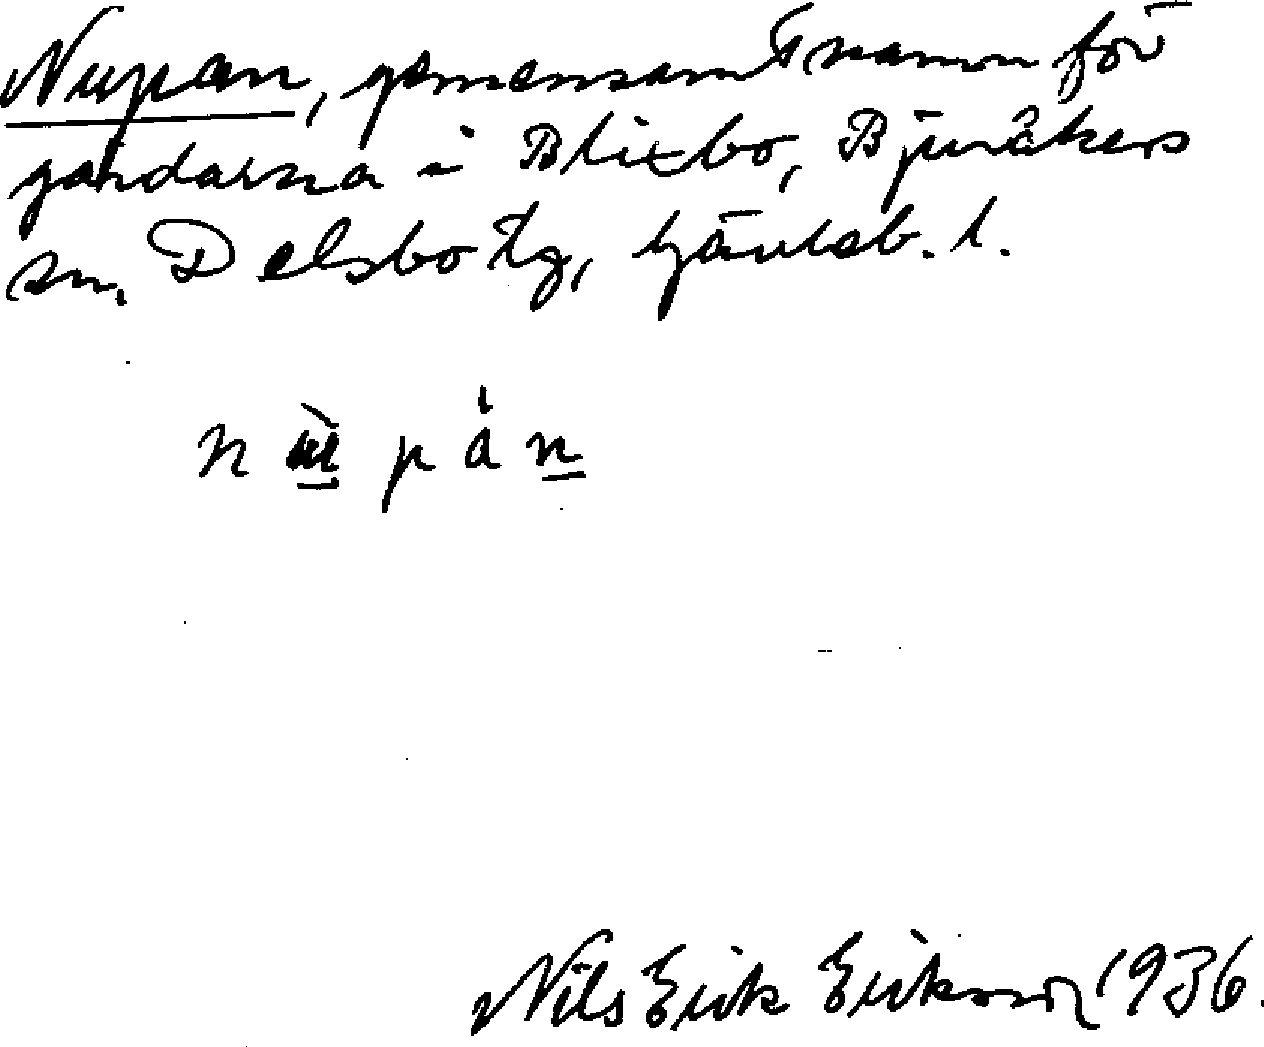 Nupan, gemensamt namn för
gårdarna i Blixbo, Bjuråkers
sn, Delsbo tg, Gävleb. l.
Nils Erik Erikson 1936.